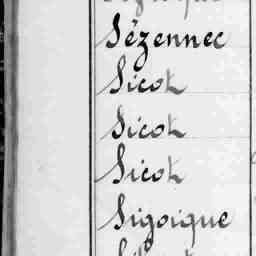 Sézennec
Sicot
Sicot
Sicot
Sigoique